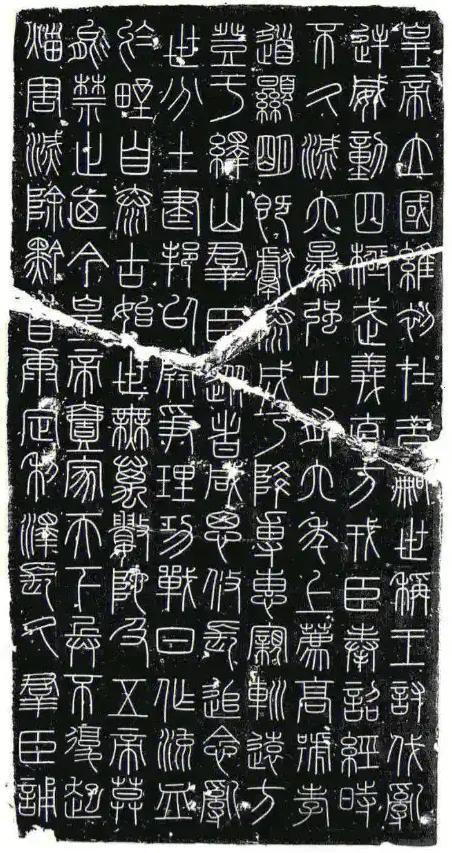 皇帝立國維初在昔嗣世稱王討伐亂
逆威動四極武義直方戎臣奉詔經時
不久滅六暴強廿有六年上薦高號孝
道顯明既獻泰成乃降尃惠寴軔遠方
登于繹山羣臣從者咸思攸長追念亂
世分土建邦以開爭理功戰日作流血
於野自泰古始世無萬數陀及五帝莫
能禁止廼今皇帝壹家天下兵不復起
災害滅除黔首康定利澤長久羣臣誦